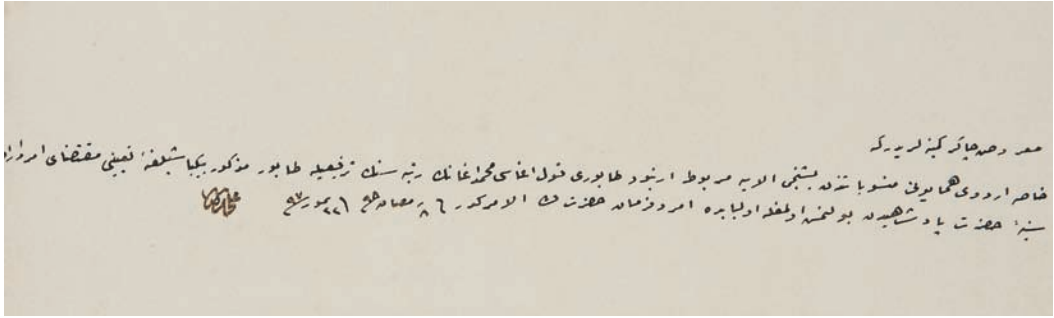 معروض چاكر كمينه لريدركه
خاصه اردوى همايونى منسوباتندن بشنجى الايه مربوط ارنبود طابورى قول اغاسى محمد اغانك رتبه سنك ترفيعيله طابور مذكور بيكباشيلغنه تعيينى مقتضاى امر واراده
سنيهٔ حضرت پادشاهيدن بولنمش اولمغله اولبابده امر وفرمان حضرت من له الامركدر فى ٦ رمضان سنه ٩٨ وفى ٢٢ تموز سنه ٩٧